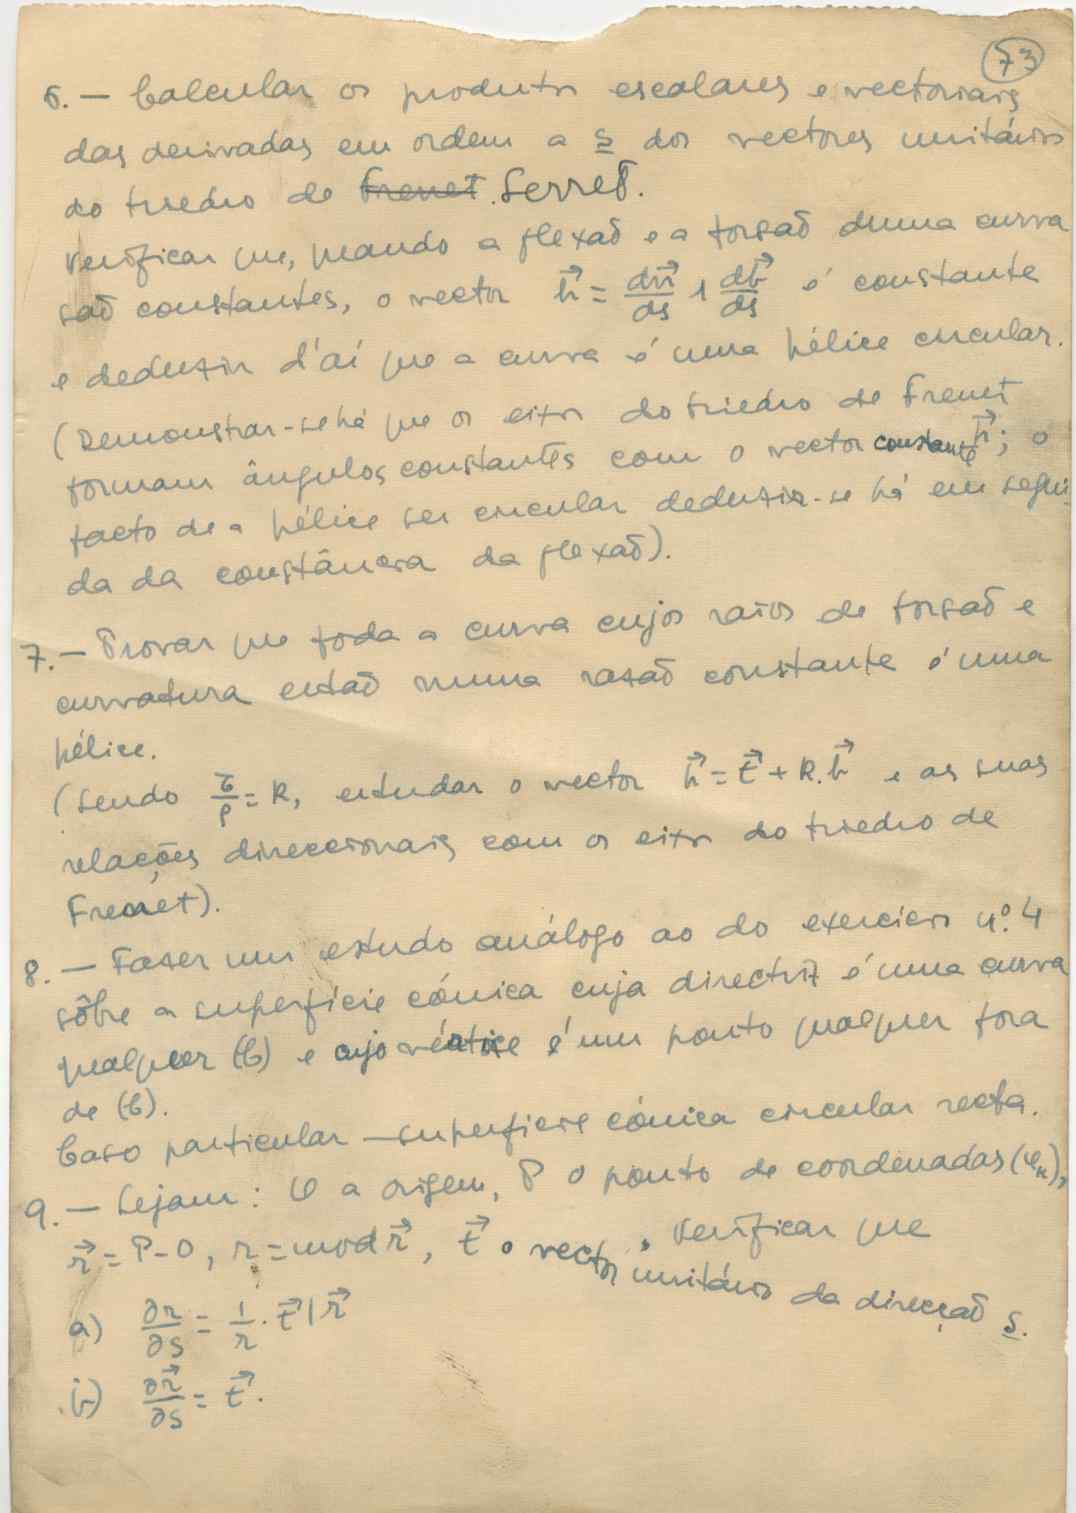 73
6. — Calcular os produtos escalares e vectoriais
das derivadas em ordem a s dos vectores unitários
do triedro de Frenet. Serret.
Verificar que, quando a flexão e a torsão duma curva
são constantes, o vector h⃗ = dn⃗/ds ∧ db⃗/ds é constante
e deduzir d'aí que a curva é uma hélice circular.
(Demonstrar-se há que os eixos do triedro de Frenet
formam ângulos constantes com o vector constante h⃗; o
facto de a hélice ser circular deduzir-se há em segui-
da da constância da flexão).
7. — Provar que toda a curva cujos raios de torsão e
curvatura estão numa razão constante é uma
hélice.
(Sendo τ/ρ = K, estudar o vector h⃗ = t⃗ + K. b⃗ e as suas
relações direccionais com os eixos do triedro de
Frenet).
8. — Fazer um estudo análogo ao do exercício n.º 4
sôbre a superfície cónica cuja directriz é uma curva
qualquer (C) e cujo vértice é um ponto qualquer fora
de (C).
Caso particular — superfície cónica circular recta.
9. — Sejam: O a origem, P o ponto de coordenadas (φₖ),
r⃗ = P-O, r = mod r⃗, t⃗ o vector unitário da direcção s.
Verificar que
a) ∂r/∂s = 1/r · t⃗ | r⃗
b) ∂r⃗/∂s = t⃗.